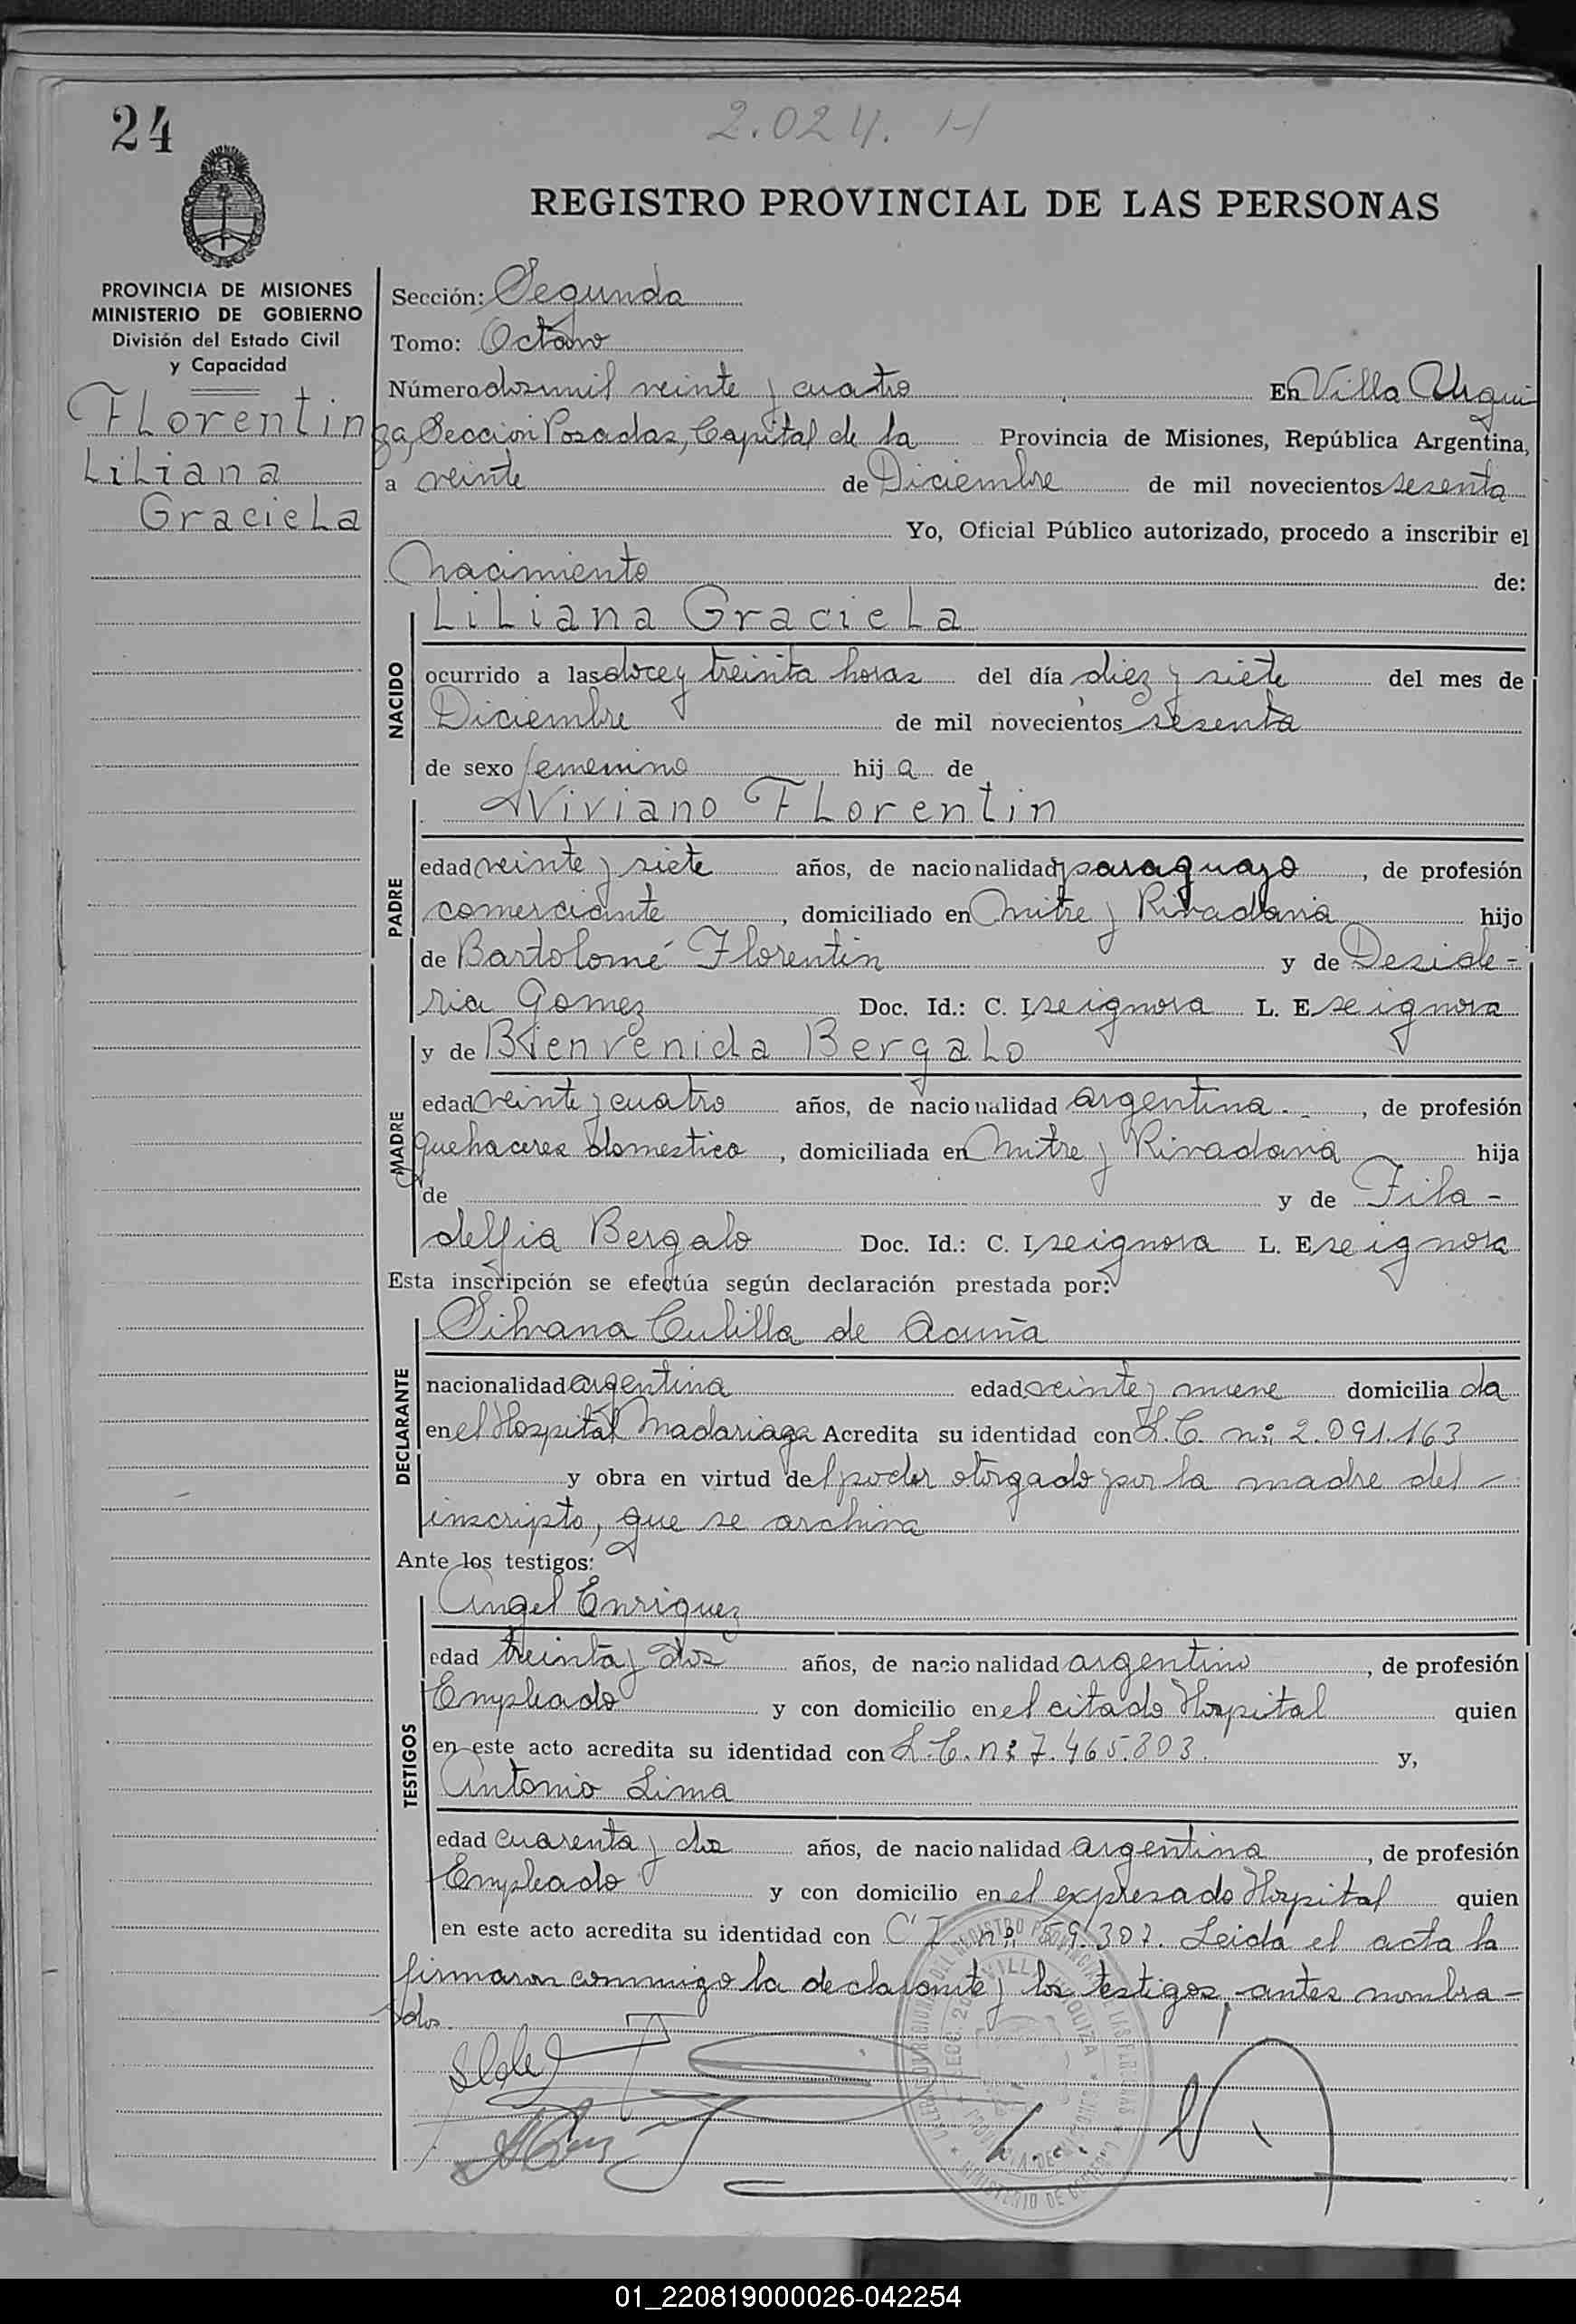 24
2.024. H
REGISTRO PROVINCIAL DE LAS PERSONAS
PROVINCIA DE MISIONES
MINISTERIO DE GOBIERNO
División del Estado Civil
y Capacidad
Florentin
Liliana
Graciela
Sección: Segunda
Tomo: Octavo
Número dos mil veinte y cuatro En Villa Urqui
za, Sección Posadas, Capital de la Provincia de Misiones, República Argentina,
a veinte de Diciembre de mil novecientos sesenta
Yo, Oficial Público autorizado, procedo a inscribir el
Nacimiento de:
NACIDO
Liliana Graciela
ocurrido a las doce y treinta horas del día diez y siete del mes de
Diciembre de mil novecientos sesenta
de sexo femenino hij a de
PADRE
Viviano Florentin
edad veinte y siete años, de nacionalidad paraguayo, de profesión
comerciante, domiciliado en Mitre y Rivadavia hijo
de Bartolomé Florentin y de Deside-
ria Gomez Doc. Id.: C. I. se ignora L. E. se ignora
MADRE
y de Bienvenida Bergalo
edad veinte y cuatro años, de nacionalidad argentina, de profesión
quehaceres domestico, domiciliada en Mitre y Rivadavia hija
de y de Fila-
delfia Bergalo Doc. Id.: C. I. se ignora L. E. se ignora
Esta inscripción se efectúa según declaración prestada por:
DECLARANTE
Silvana Cubilla de Acuña
nacionalidad argentina edad veinte y nueve domicilia da
en el Hospital Madariaga Acredita su identidad con L.C. nº 2.091.163
y obra en virtud del poder otorgado por la madre del
inscripto, que se archiva
Ante los testigos:
TESTIGOS
Angel Enriquez
edad treinta y dos años, de nacionalidad argentino, de profesión
Empleado y con domicilio en el citado Hospital quien
en este acto acredita su identidad con L.E. nº 7.465.803. y,
Antonio Lima
edad cuarenta y dos años, de nacionalidad argentina, de profesión
Empleado y con domicilio en el expresado Hospital quien
en este acto acredita su identidad con C I nº 59.307. Leida el acta la
firmaron conmigo la declarante y los testigos, antes nombra-
dos.
01_220819000026-042254